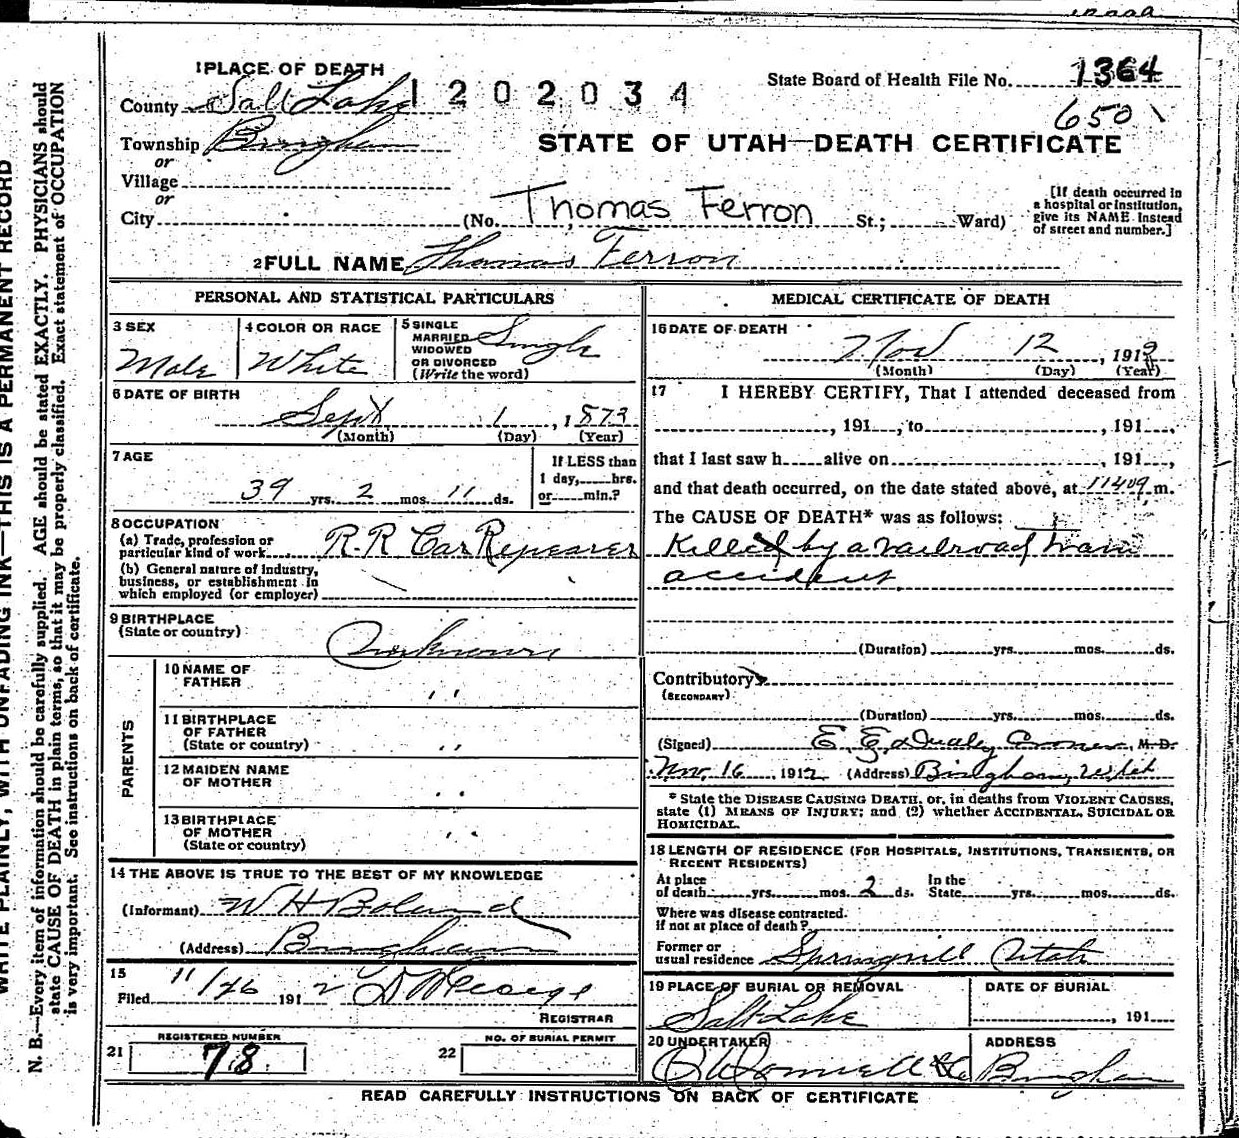 1 PLACE OF DEATH
State Board of Health File No. 1364
County Salt Lake 1202034
6501
Township Bingham
STATE OF UTAH—DEATH CERTIFICATE
or
Village
or
City (No. Thomas Ferron St.; Ward)
[If death occurred in a hospital or institution, give its NAME instead of street and number.]
2 FULL NAME Thomas Ferron
PERSONAL AND STATISTICAL PARTICULARS
3 SEX
Male
4 COLOR OR RACE
White
5 SINGLE
MARRIED
WIDOWED
OR DIVORCED
(Write the word)
Single
6 DATE OF BIRTH
Sept 1, 1873
(Month) (Day) (Year)
7 AGE
39 yrs. 2 mos. 11 ds.
If LESS than
1 day, hrs.
or min.?
8 OCCUPATION
(a) Trade, profession or
particular kind of work R.R Car Repearer
(b) General nature of industry,
business, or establishment in
which employed (or employer)
9 BIRTHPLACE
(State or country)
Unknown
PARENTS
10 NAME OF
FATHER "
11 BIRTHPLACE
OF FATHER
(State or country) "
12 MAIDEN NAME
OF MOTHER "
13 BIRTHPLACE
OF MOTHER
(State or country) "
14 THE ABOVE IS TRUE TO THE BEST OF MY KNOWLEDGE
(Informant) W H Boland
(Address) Bingham
15
Filed 11/26 1912
REGISTRAR
REGISTERED NUMBER
21 78
NO. OF BURIAL PERMIT
22
MEDICAL CERTIFICATE OF DEATH
16 DATE OF DEATH
Nov 12, 191
(Month) (Day) (Year)
17 I HEREBY CERTIFY, That I attended deceased from
, 191 , to , 191 ,
that I last saw h alive on , 191 ,
and that death occurred, on the date stated above, at m.
The CAUSE OF DEATH* was as follows:
Killed by a railroad train
accident
(Duration) yrs. mos. ds.
Contributory
(SECONDARY)
(Duration) yrs. mos. ds.
(Signed) E. E. Coroner, M.D.
Nov. 16, 1912 (Address) Bingham, Utah
* State the DISEASE CAUSING DEATH, or, in deaths from VIOLENT CAUSES,
state (1) MEANS OF INJURY; and (2) whether ACCIDENTAL, SUICIDAL OR
HOMICIDAL.
18 LENGTH OF RESIDENCE (FOR HOSPITALS, INSTITUTIONS, TRANSIENTS, OR
RECENT RESIDENTS)
At place
of death yrs. mos. 2 ds. In the
State yrs. mos. ds.
Where was disease contracted.
If not at place of death?
Former or
usual residence Springvill Utah
19 PLACE OF BURIAL OR REMOVAL
Salt Lake
DATE OF BURIAL
, 191
20 UNDERTAKER
O'Donnell & Co
ADDRESS
Bingham
READ CAREFULLY INSTRUCTIONS ON BACK OF CERTIFICATE
WRITE PLAINLY, WITH UNFADING INK—THIS IS A PERMANENT RECORD
N. B.—Every item of information should be carefully supplied. AGE should be stated EXACTLY. PHYSICIANS should
state CAUSE OF DEATH in plain terms, so that it may be properly classified. Exact statement of OCCUPATION
is very important. See instructions on back of certificate.